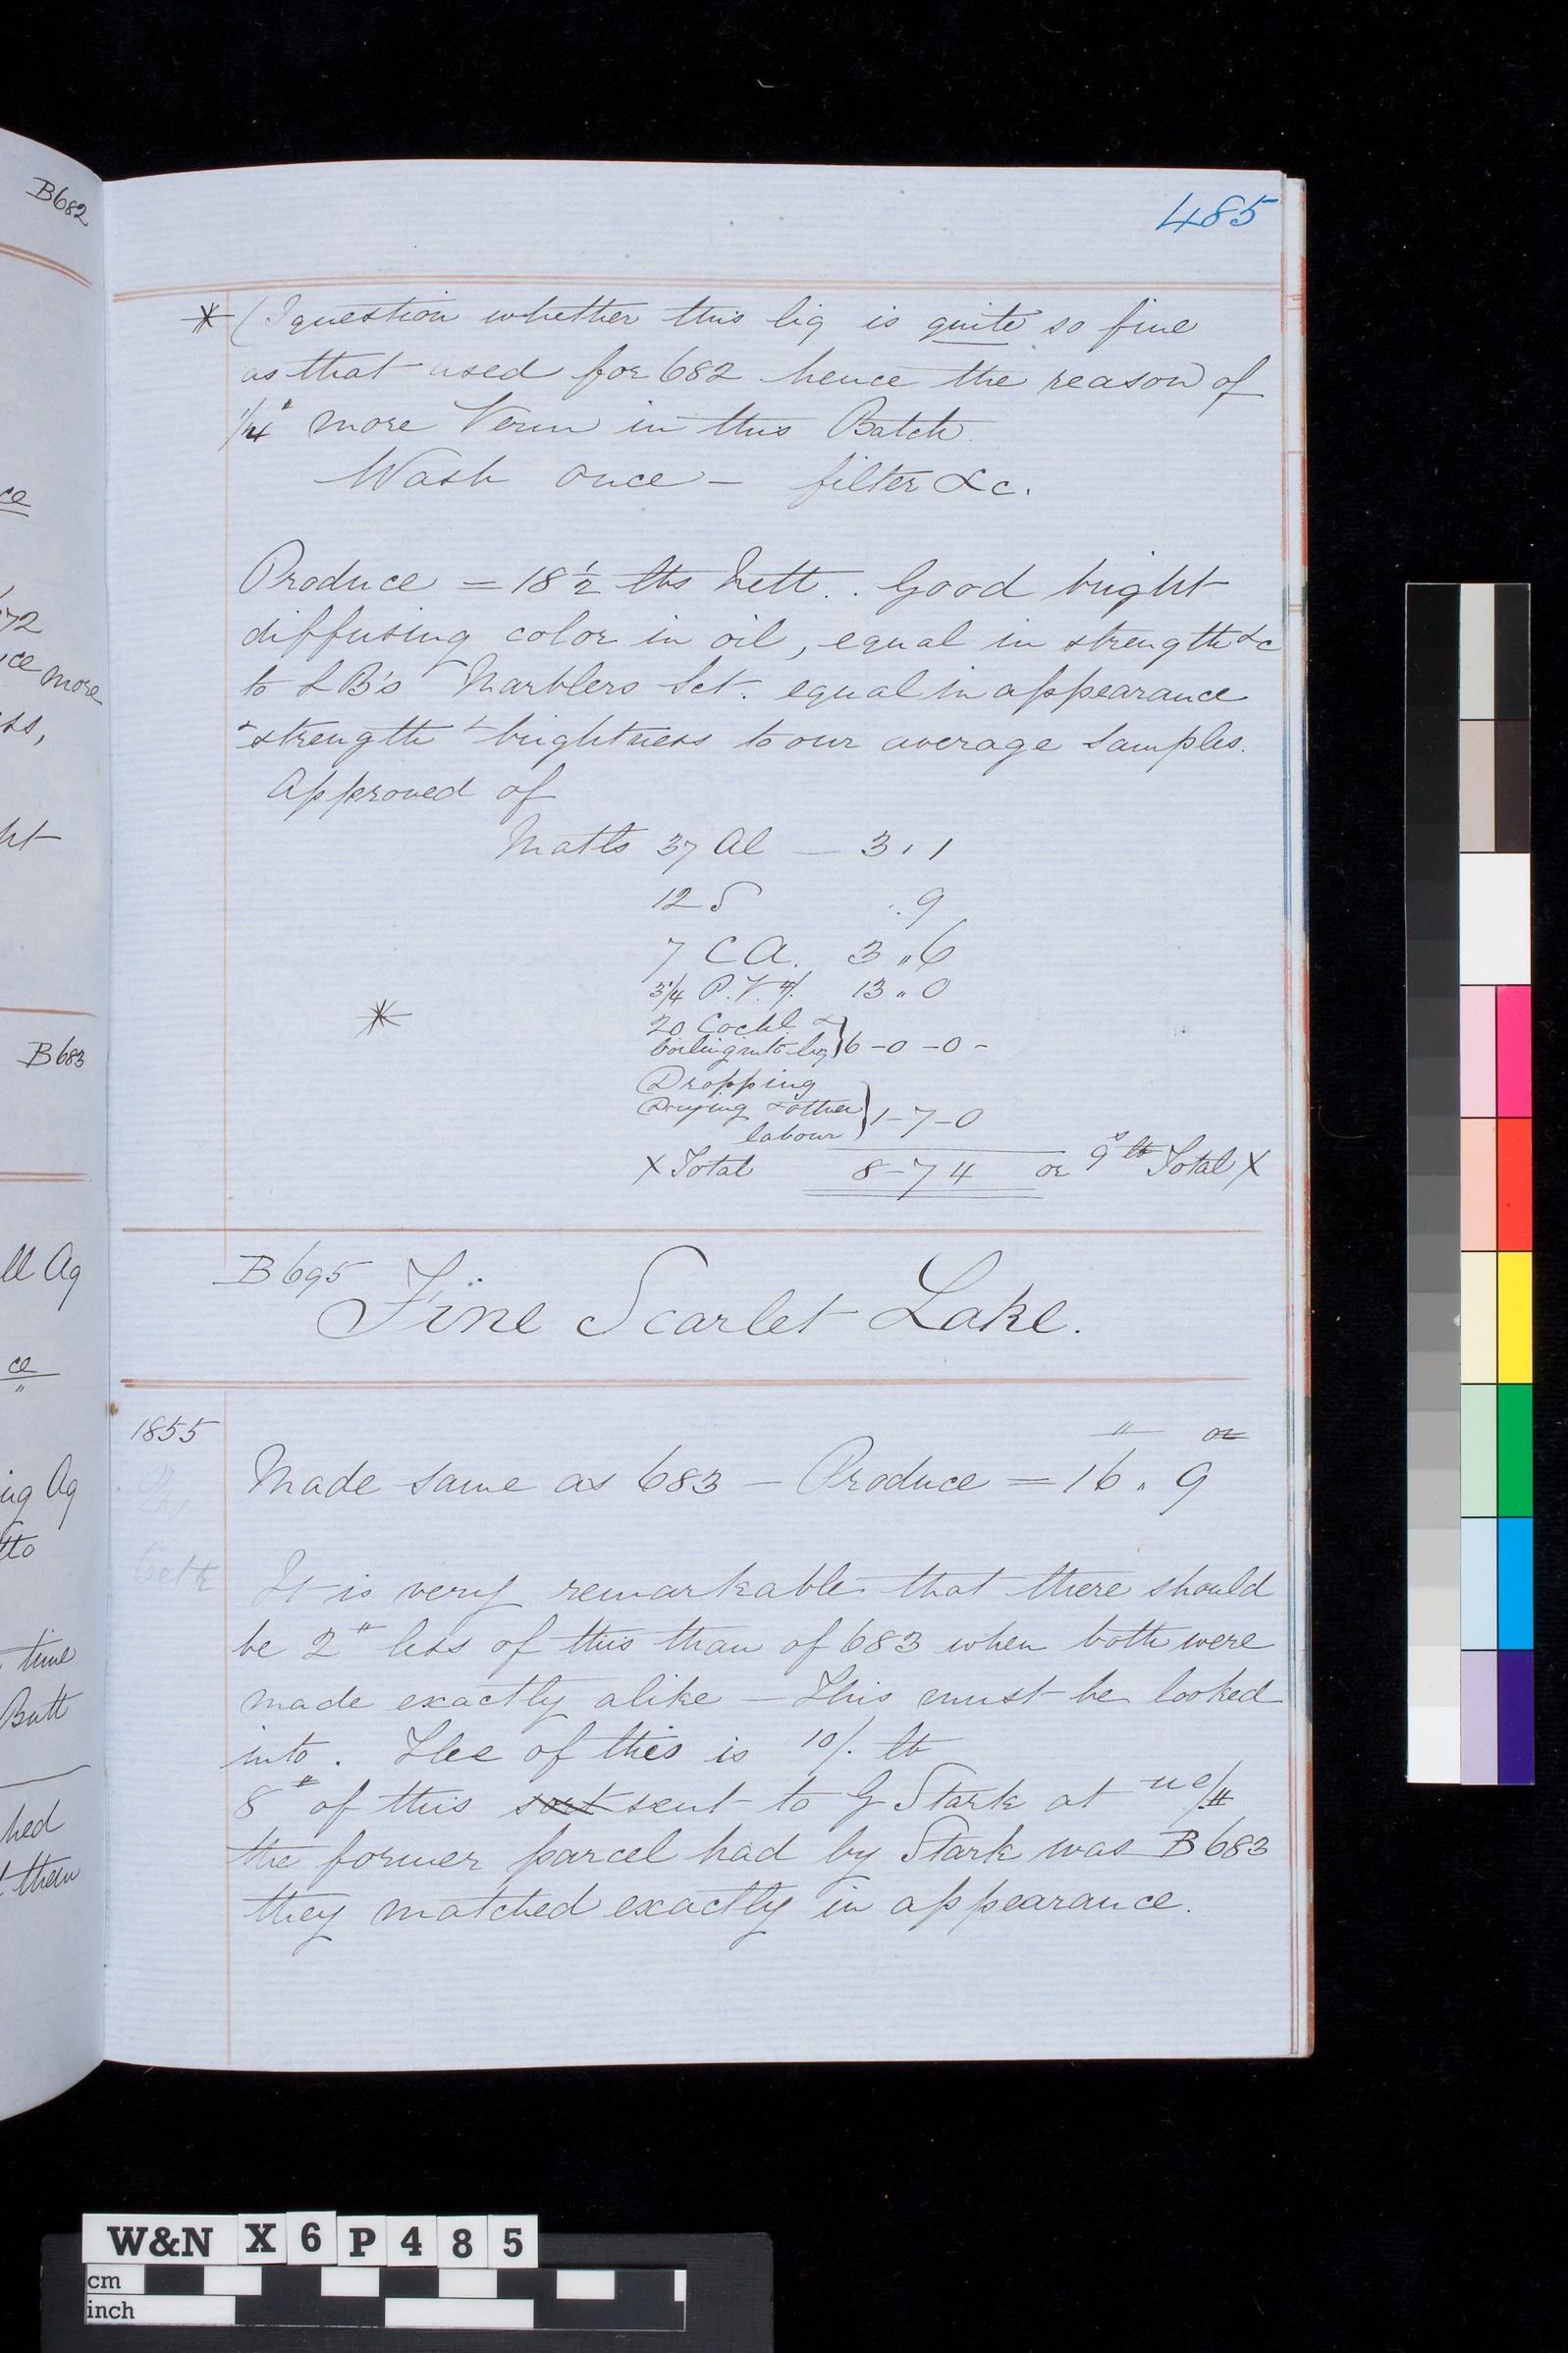 B682
485
* (I question whether this liq is quite so fine
as that used for 682 hence the reason of
1/4 # more Verm in this Batch.
Wash once - filter &c.
Produce = 18 1/2 lbs Nett. . Good bright
diffusing color in oil, equal in strength &c
to LB's Marblers Sct. equal in appearance
& strength & brightness to our average samples.
Approved of
Matls 37 Al — 3 , 1
12 S . . 9
7 C A. 3 " 6
3 1/4 P. V. 4/. 13 " 0
* 20 Cochl &
boiling into liq } 6 - 0 - 0 -
Dropping
Drying & other } 1 - 7 - 0
labour
X Total 8 - 7 4 or 9s lb Total X
B695
Fine Scarlet Lake.
1855
# oz
Made same as 683 — Produce = 16 . 9
Oct
It is very remarkable that there should
be 2 # less of this than of 683 when both were
made exactly alike — This must be looked
into . The of this is 10/. lb
8 # of this sort sent to G Stark at
the former parcel had by Stark was B683
they matched exactly in appearance.
ce
72
ce more
ss,
ht
B683
ll Aq
ce
"
ing Aq
tto
time
Butt
hed
them
W&N X6P485
cm
inch